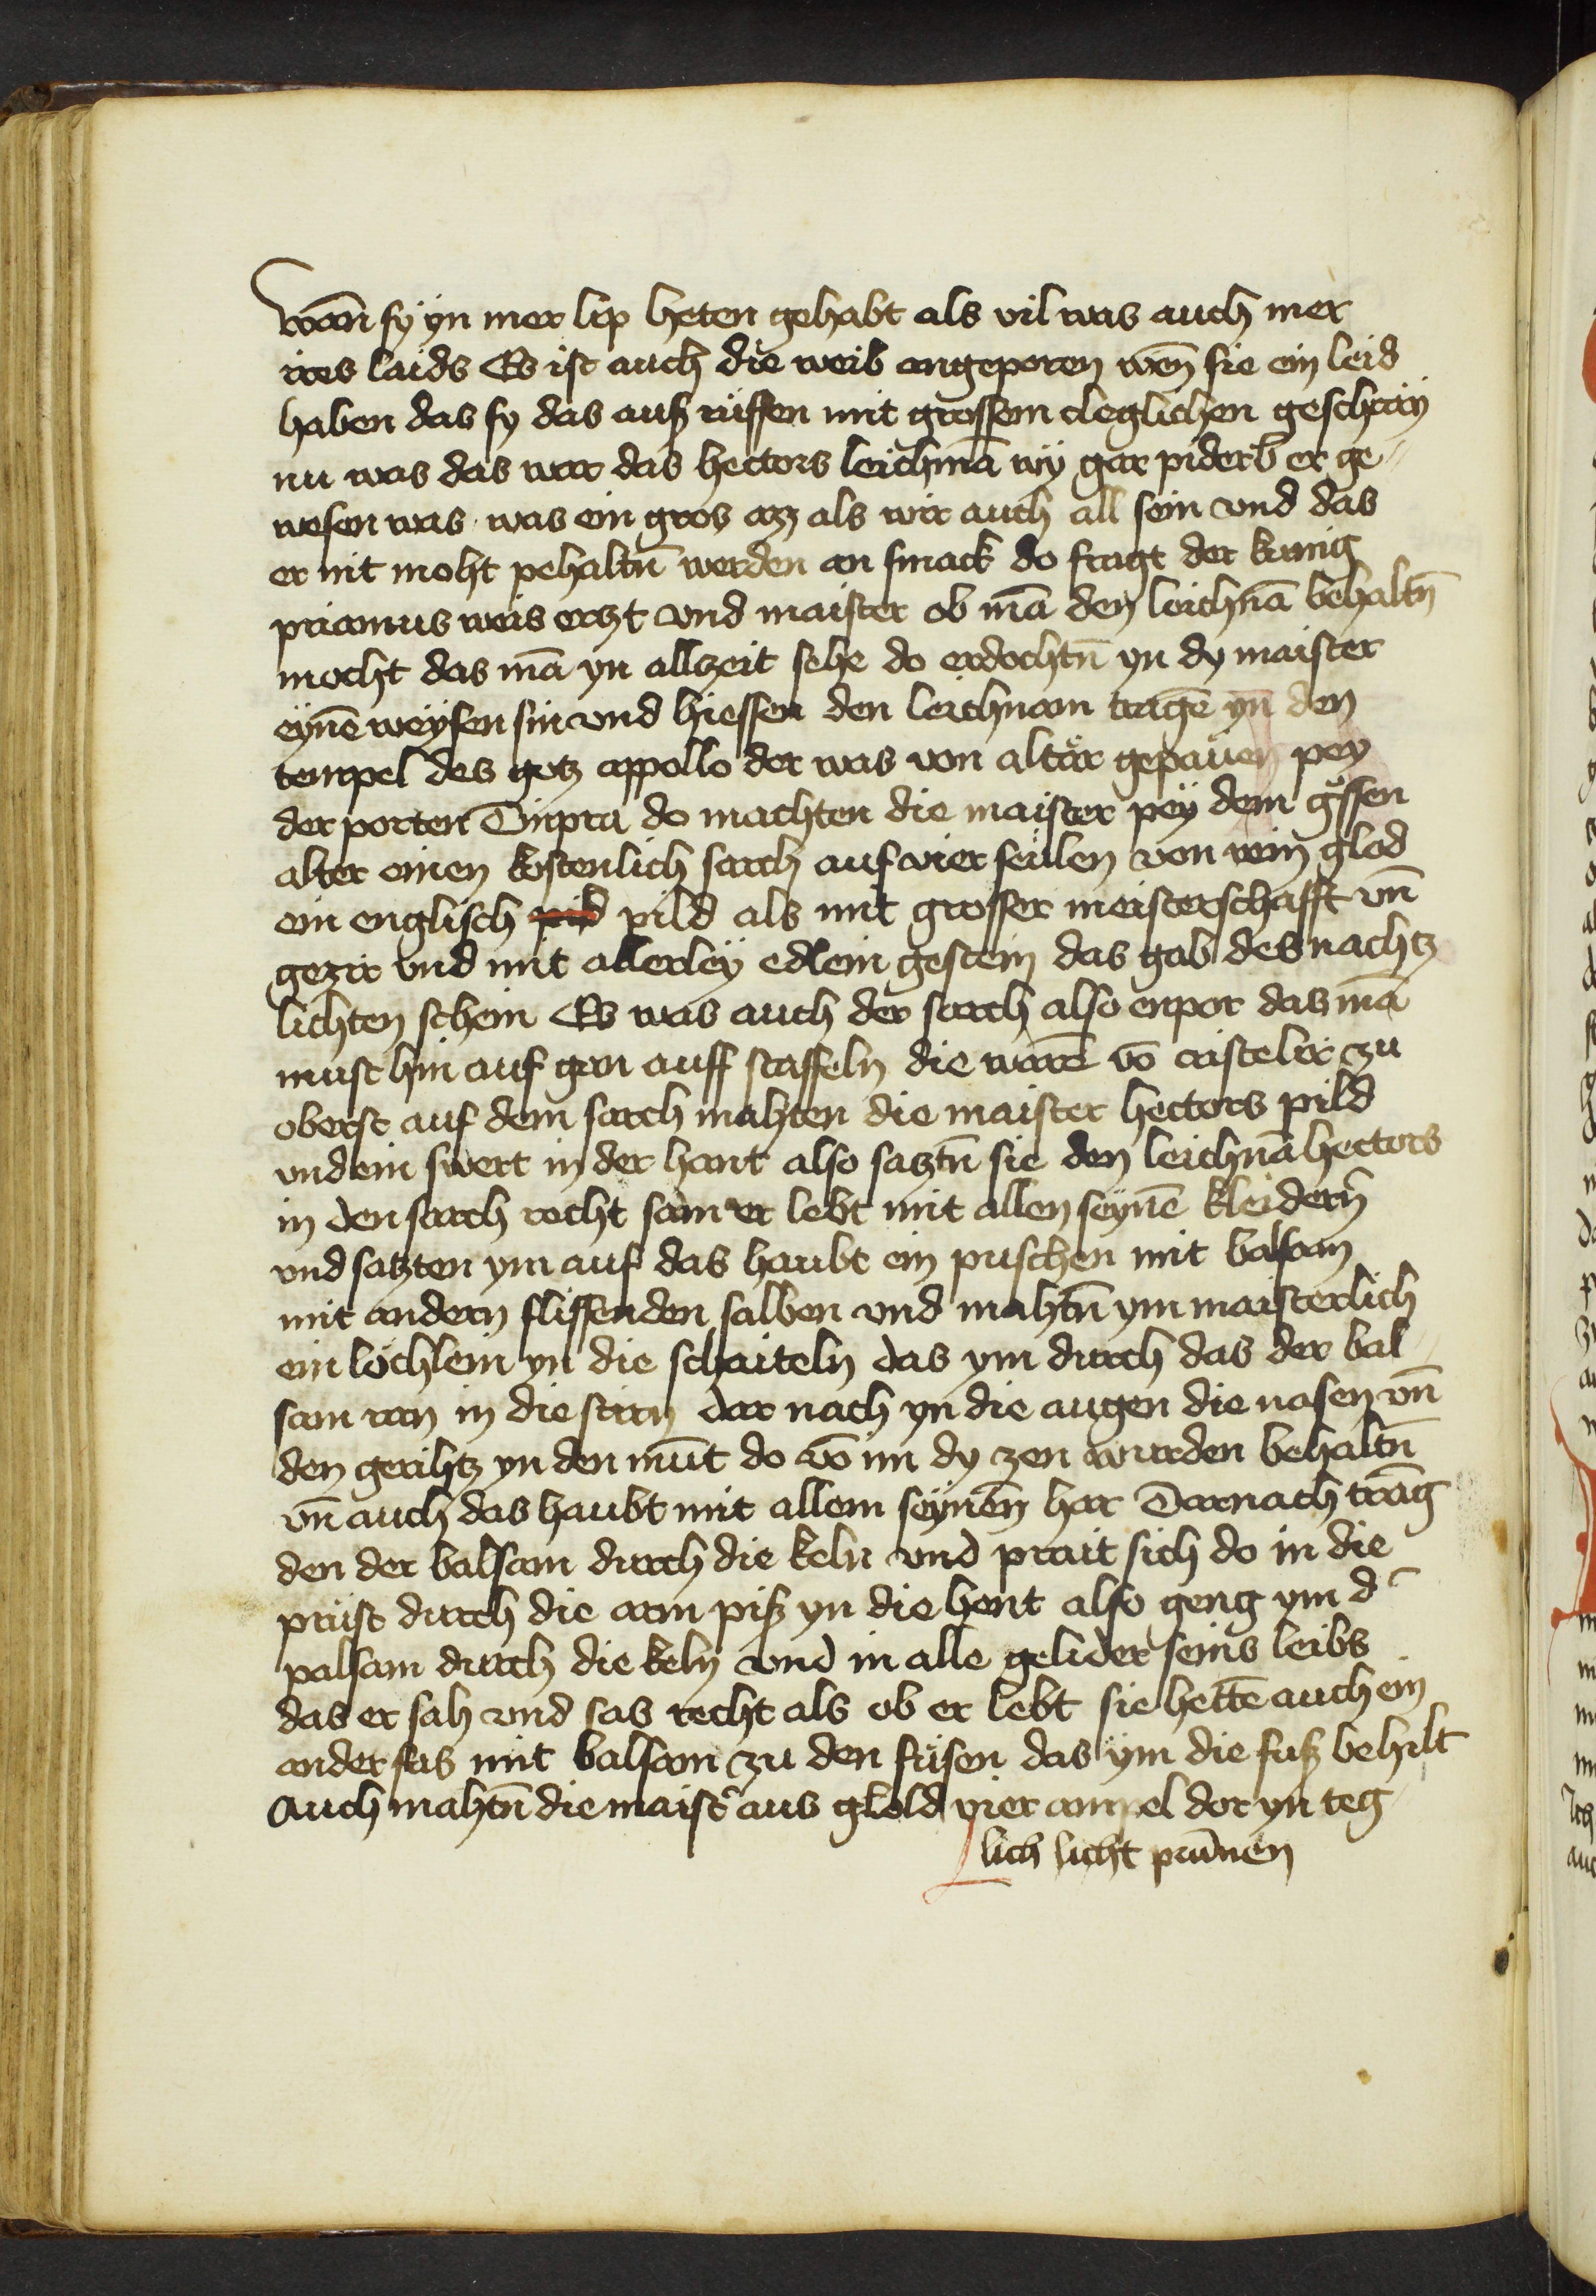 wan̄ sy yn mer lip heten gehabt als vil was auch mer
ires laids Es ist auch die weib angeporen wen̄ sie ein leid
haben das sy das auß rüffen mit grossem cleglichen geschray
nu was das war das hectors leichnā wy gar piderb er ge⸗
wesen was was ein gros az als wir auch all sein vnd das
er nit moht pehaltn̄ werden an smack do fragt der kunig
priamus weis erczt vnd maister ob mā den leichnā behaltn̄
mocht das mā yn allzeit sehe do erdochtn̄ yn dy maister
eynē weysen sin vnd hiessen den leichnam tragē yn den
tempel des gotz appollo der was von altar gepauen pey
der porten Tinpra do machten die maister pey dem gossen
alter einen kostenlich sarch auf vier seulen von rein glod
ein englisch pild als mit grosser meisterschafft vn̄
gezir vnd mit allerley edlem gestein das gab des nachtz
lichten schein Es was auch der sarch also enpor das mā
must hin auf gen auff staffeln die warē vō cristelir zu
oberst auf dem sarch mahten die maister hectors pild
vnd ein swert in der hant also satztn̄ sie den leichnā hectors
in den sarch recht sam er lebt mit allen seynē kleidern̄
vnd satzten ym auf das haubt ein puschen mit balsam
mit andern flissenden salben vnd mahtn̄ ym maisterlich
ein löchlein yn die schaiteln das ym durch das der bal⸗
sam ran in die stirn dar nach yn die augen die nasen vn̄
den gerihtz yn den mūt do vō im dy zen wurden behaltn̄
vn̄ auch das haubt mit allem seynen̄ har Darnach trāg
den der balsam durch die keln vnd prait sich do in die
prüst durch die arm piß yn die hent also geng ym d'
palsam durch die keln vnd in alle gelider seins leibs
das er sah vnd sas recht als ob er lebt sie hettē auch ein
ander fas mit balsam zu den füsen das ym die fuß behilt
Auch mahtn̄ die maist' aus glold vier ampel dor yn teg
lich licht prūnen